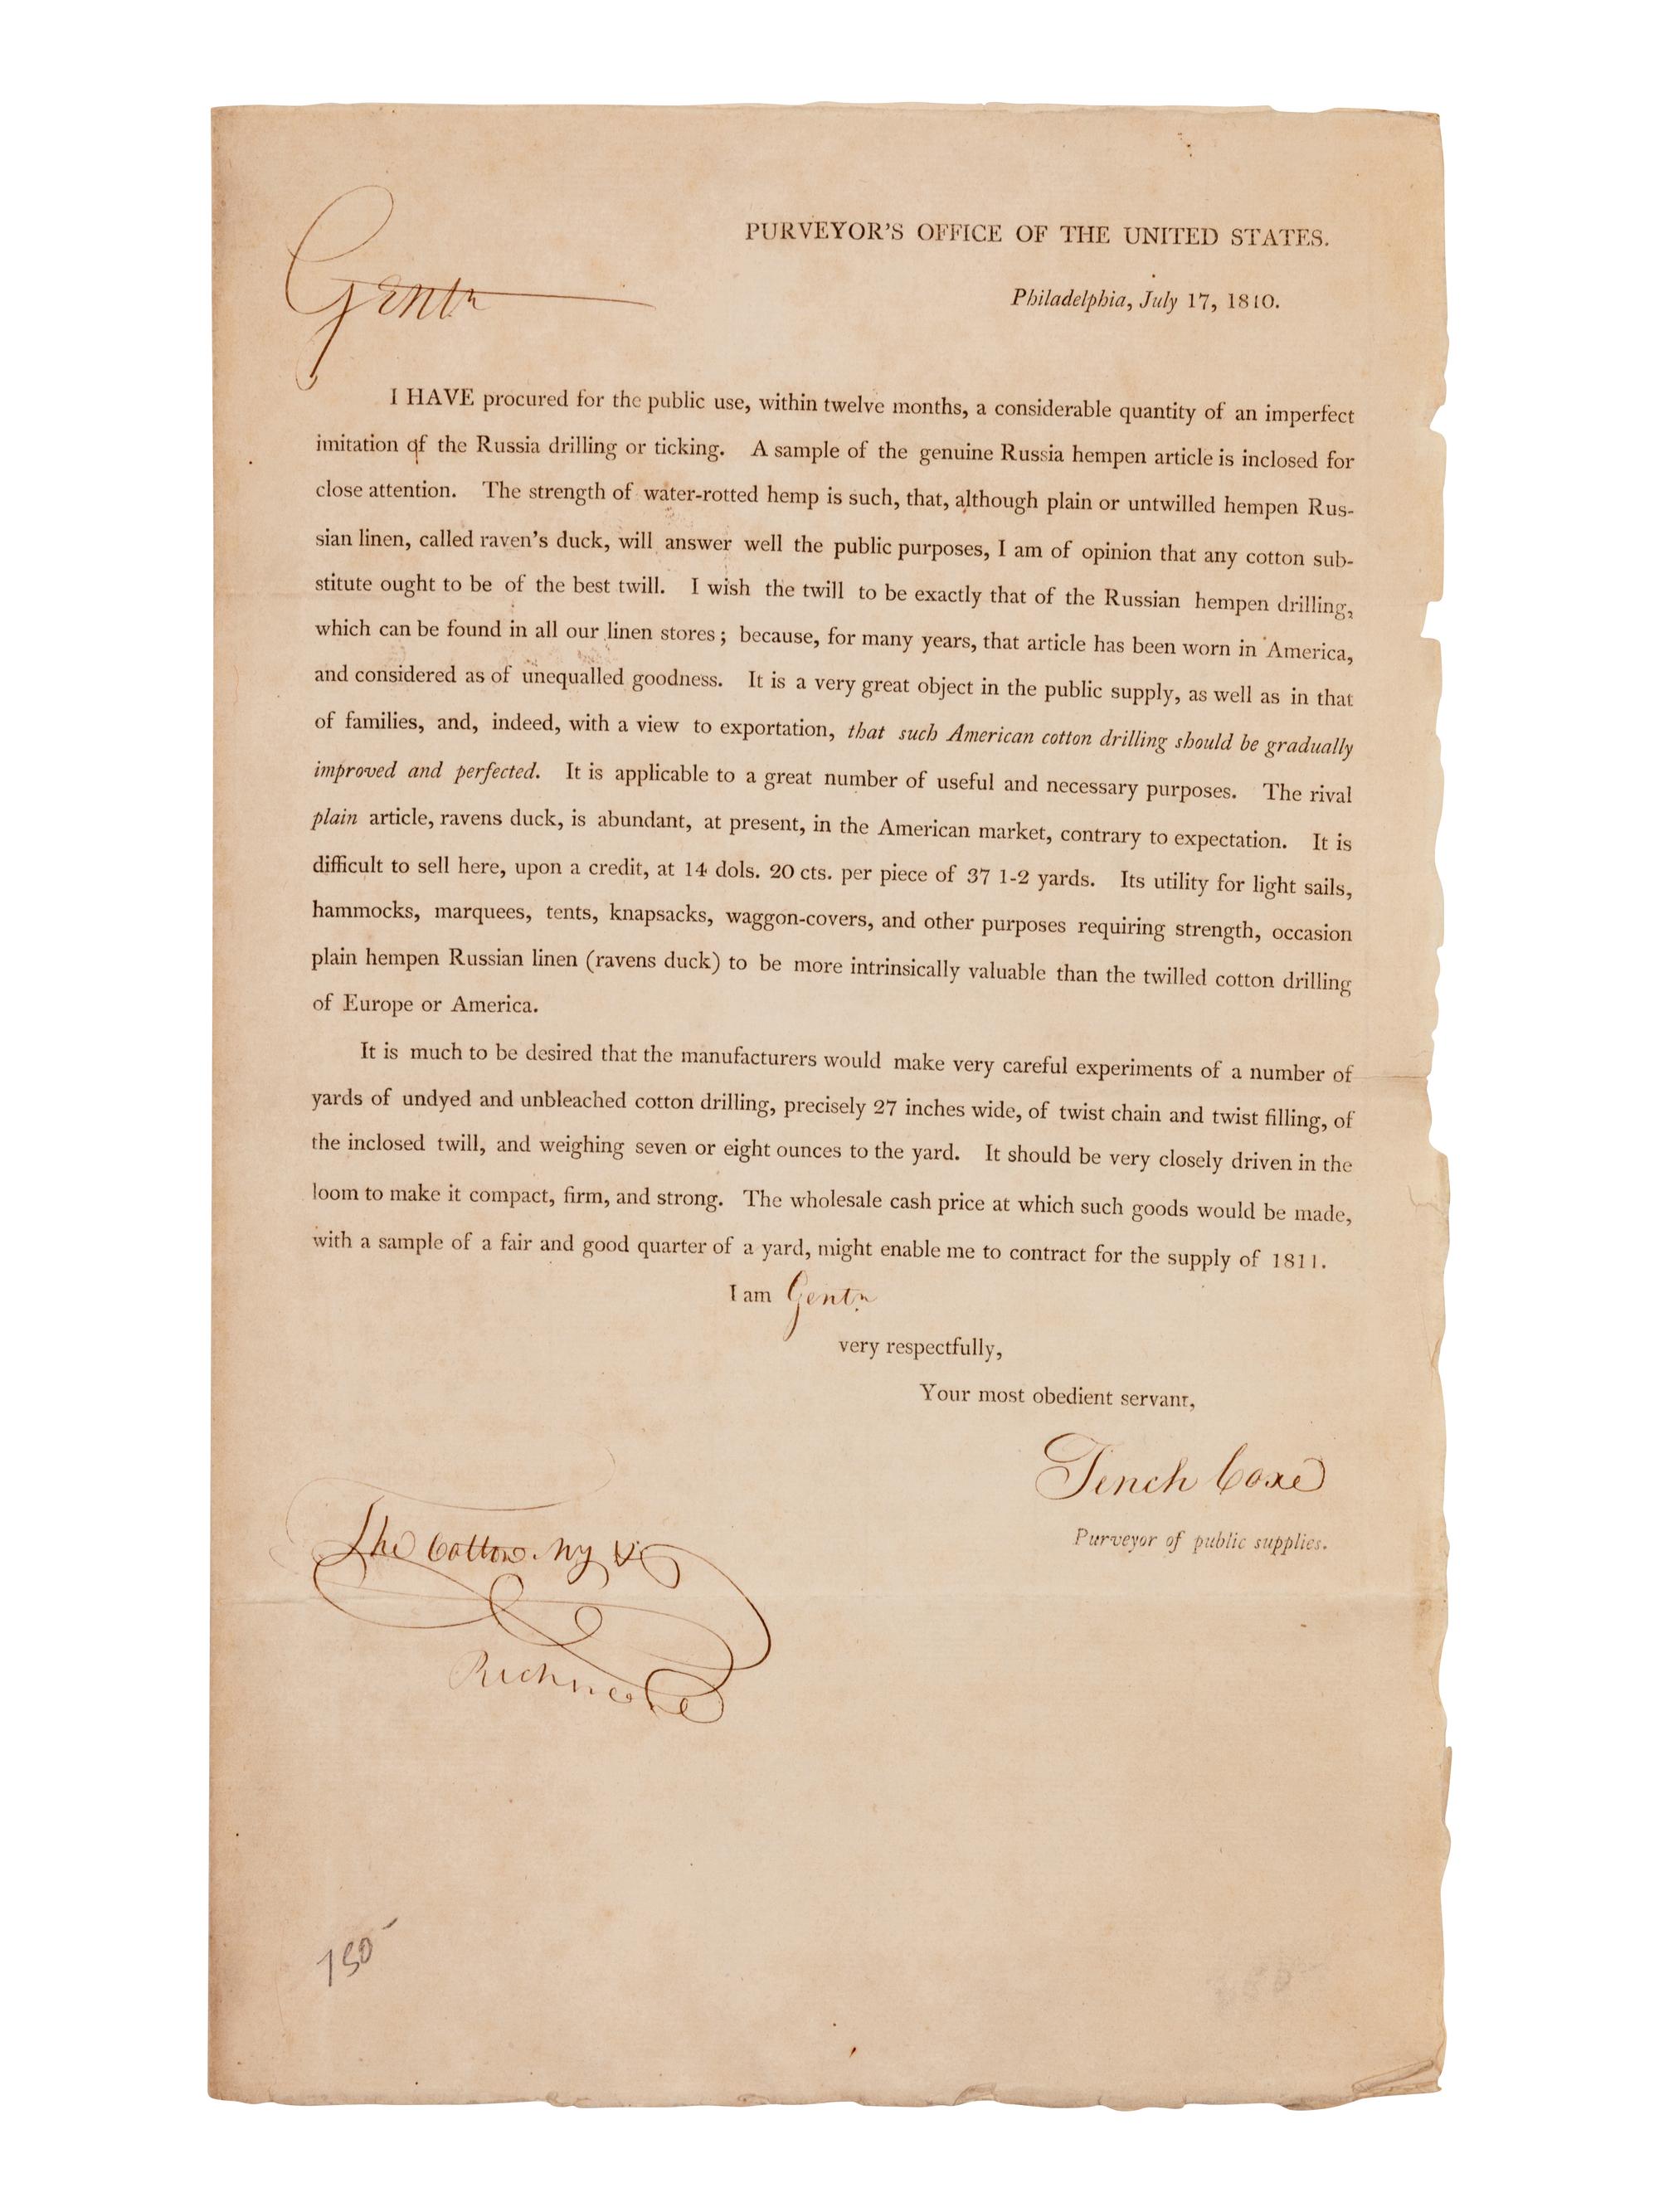 PURVEYOR'S OFFICE OF THE UNITED STATES.
Gentn
Philadelphia, July 17, 1810.
I HAVE procured for the public use, within twelve months, a considerable quantity of an imperfect
imitation of the Russia drilling or ticking. A sample of the genuine Russia hempen article is inclosed for
close attention. The strength of water-rotted hemp is such, that, although plain or untwilled hempen Rus-
sian linen, called raven's duck, will answer well the public purposes, I am of opinion that any cotton sub-
stitute ought to be of the best twill. I wish the twill to be exactly that of the Russian hempen drilling,
which can be found in all our linen stores; because, for many years, that article has been worn in America,
and considered as of unequalled goodness. It is a very great object in the public supply, as well as in that
of families, and, indeed, with a view to exportation, that such American cotton drilling should be gradually
improved and perfected. It is applicable to a great number of useful and necessary purposes. The rival
plain article, ravens duck, is abundant, at present, in the American market, contrary to expectation. It is
difficult to sell here, upon a credit, at 14 dols. 20 cts. per piece of 37 1-2 yards. Its utility for light sails,
hammocks, marquees, tents, knapsacks, waggon-covers, and other purposes requiring strength, occasion
plain hempen Russian linen (ravens duck) to be more intrinsically valuable than the twilled cotton drilling
of Europe or America.
It is much to be desired that the manufacturers would make very careful experiments of a number of
yards of undyed and unbleached cotton drilling, precisely 27 inches wide, of twist chain and twist filling, of
the inclosed twill, and weighing seven or eight ounces to the yard. It should be very closely driven in the
loom to make it compact, firm, and strong. The wholesale cash price at which such goods would be made,
with a sample of a fair and good quarter of a yard, might enable me to contract for the supply of 1811.
I am Gentn
very respectfully,
Your most obedient servant,
Tench Coxe
Purveyor of public supplies.
The Cotton
150